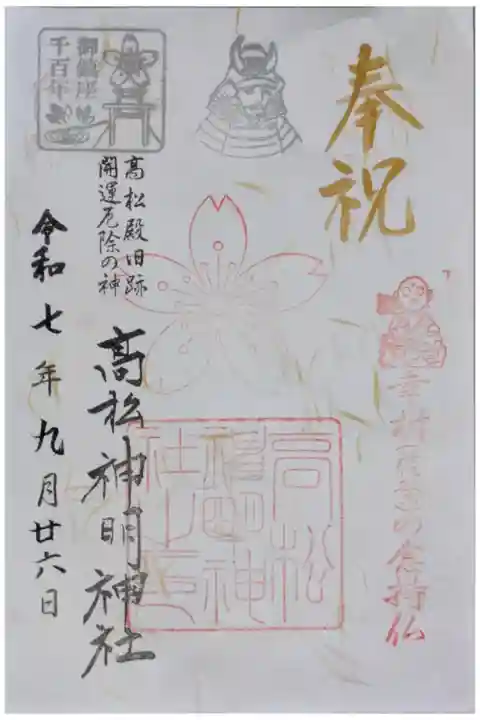 奉祝
幸村
の念持仏
高松
神明神
社之印
御鎮座
千百年
高松殿旧跡
開運厄除の神
高松神明神社
令和七年九月廿六日